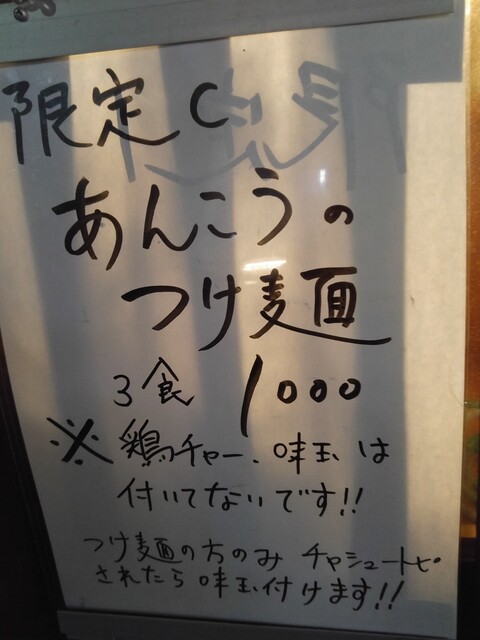 限定C
あんこうの
つけ麺
3食 1000
※鶏チャー、味玉は
付いてないです!!
つけ麺の方のみ チャシュートピ
されたら味玉付けます!!